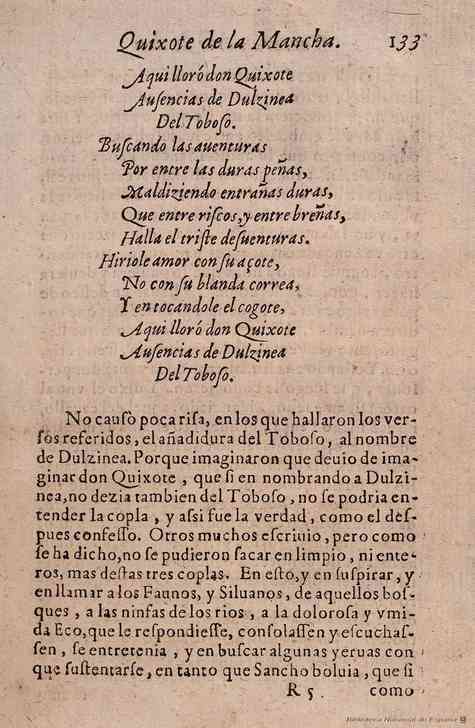 Quixote de la Mancha. 133
Aqui lloró don Quixote
Ausencias de Dulzinea
Del Toboso.
Buscando las auenturas
Por entre las duras peñas,
Maldiziendo entrañas duras,
Que entre riscos, y entre breñas,
Halla el triste desuenturas.
Hiriole amor con su açote,
No con su blanda correa,
Y en tocandole el cogote,
Aqui lloró don Quixote
Ausencias de Dulzinea
Del Toboso.
No causò poca risa, en los que hallaron los ver-
sos referidos, el añadidura del Toboso, al nombre
de Dulzinea. Porque imaginaron que deuio de ima-
ginar don Quixote, que si en nombrando a Dulzi-
nea, no dezia tambien del Toboso, no se podria en-
tender la copla, y assi fue la verdad, como el des-
pues confesso. Otros muchos escriuio, pero como
se ha dicho, no se pudieron sacar en limpio, ni ente-
ros, mas destas tres coplas. En esto, y en suspirar, y
en llamar a los Faunos, y Siluanos, de aquellos bos-
ques, a las ninfas de los rios, a la dolorosa y vmi-
da Eco, que le respondiesse, consolassen y escuchas-
sen, se entretenia, y en buscar algunas yeruas con
que sustentarse, en tanto que Sancho boluia, que si
R 5. como
Biblioteca Nacional de España